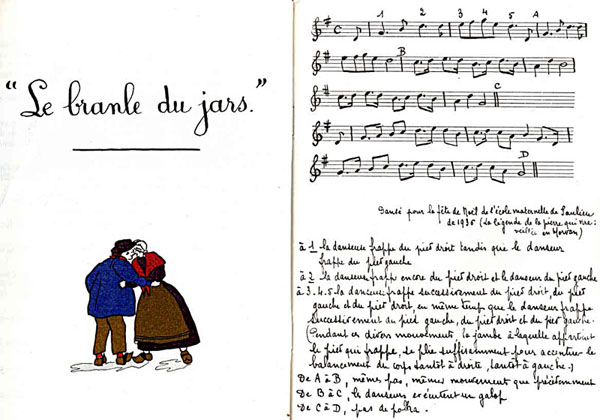 “Le branle du jars.”
1 2 3 4 5 A
B
C
D
Dansé pour la fête de Noël de l'école maternelle de Saulieu
de 1936 (La légende de la pierre qui vire :
veillée en Morvan)
à 1 la danseuse frappe du pied droit tandis que le danseur
frappe du pied gauche
à 2 la danseuse frappe encore du pied droit et le danseur du pied gauche
à 3.4.5 la danseuse frappe successivement du pied droit, du pied
gauche et du pied droit, en même temps que le danseur frappe
successivement du pied gauche, du pied droit et du pied gauche.
(Pendant ces divers mouvements, la jambe à laquelle appartient
le pied qui frappe, se plie suffisamment pour accentuer le
balancement du corps tantôt à droite, tantôt à gauche.)
De A à B, mêmes pas, mêmes mouvement que précédemment
De B à C, les danseurs exécutent un galop
De C à D, pas de polka.